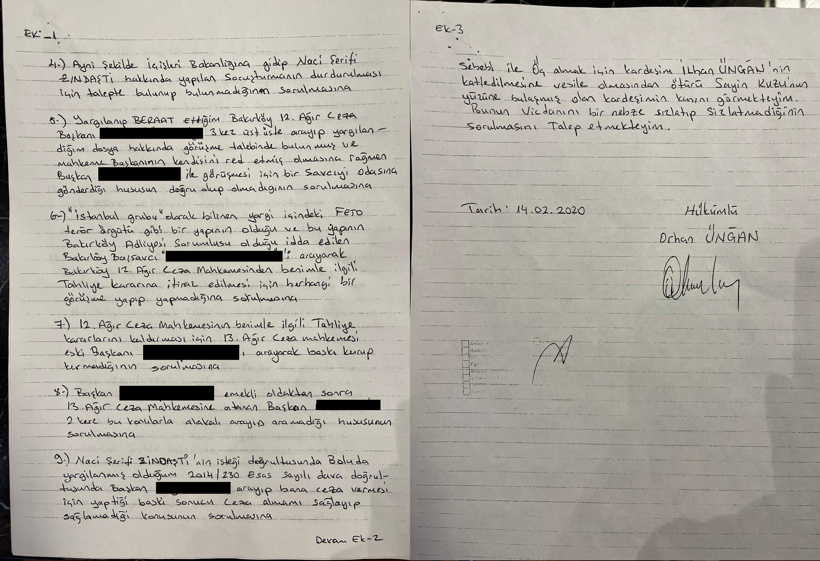 EK-1
4-) Ayni Şekilde İçişleri Bakanlığına gidip Naci Serifi
ZİNDAŞTİ hakkında yapılan Soruşturmanın durdurulması
için talepte bulunup bulunmadığının sorulmasına
5-) Yargılanıp BERAAT ettiğim Bakırköy 12. Ağır Ceza
Başkanı 3 kez üst üste arayıp yargılan-
dığım dosya hakkında görüşme talebinde bulunmuş ve
mahkeme Başkanının kendisini red etmiş olmasına rağmen
Başkan ile görüşmesi için bir Savcıyı odasına
gönderdiği hususun doğru olup olmadığının sorulmasına
6-) "İstanbul grubu" olarak bilinen yargı içindeki FETO
terör örgütü gibi bir yapının olduğu ve bu yapının
Bakırköy Adliyesi Sorumlusu olduğu idda edilen
Bakırköy Başsavcı " " arayarak
Bakırköy 12. Ağır Ceza Mahkemesinden benimle ilgili
Tahliye kararına itiraz edilmesi için herhangi bir
görüşme yapıp yapmadığına sorulmasına
7-) 12. Ağır Ceza Mahkemesinin benimle ilgili Tahliye
kararlarını kaldırması için 13. Ağır Ceza mahkemesi
eski Başkanı , arayarak baskı kurup
kurmadığının sorulmasına
8-) Başkan emekli olduktan sonra
13. Ağır Ceza Mahkemesine atanan Başkan
2 kere bu konularla alakalı arayıp aramadığı hususunun
sorulmasına
9-) Naci Şerifi ZİNDAŞTİ'nin isteği doğrultusunda Boluda
yargılanmış olduğum 2014/230 Esas sayılı dava doğrul-
tusunda Başkan arayıp bana ceza vermesi
için yaptığı baskı sonucu Ceza almamı sağlayıp
sağlamadığı konusunun sorulmasına
Devam Ek-2
EK-3
Sebebi ile Öç almak için kardeşim İLhan ÜNGAN'nin
katledilmesine vesile olmasından ötürü Sayin Kuzu'nun
yüzüne bulaşmış olan kardeşimin kanını görmekteyim.
Bunun Vicdanını bir nebze sızlatıp Sızlatmadığının
sorulmasını Talep etmekteyim.
Tarih: 14.02.2020
Hükümlü
Orhan ÜNGAN